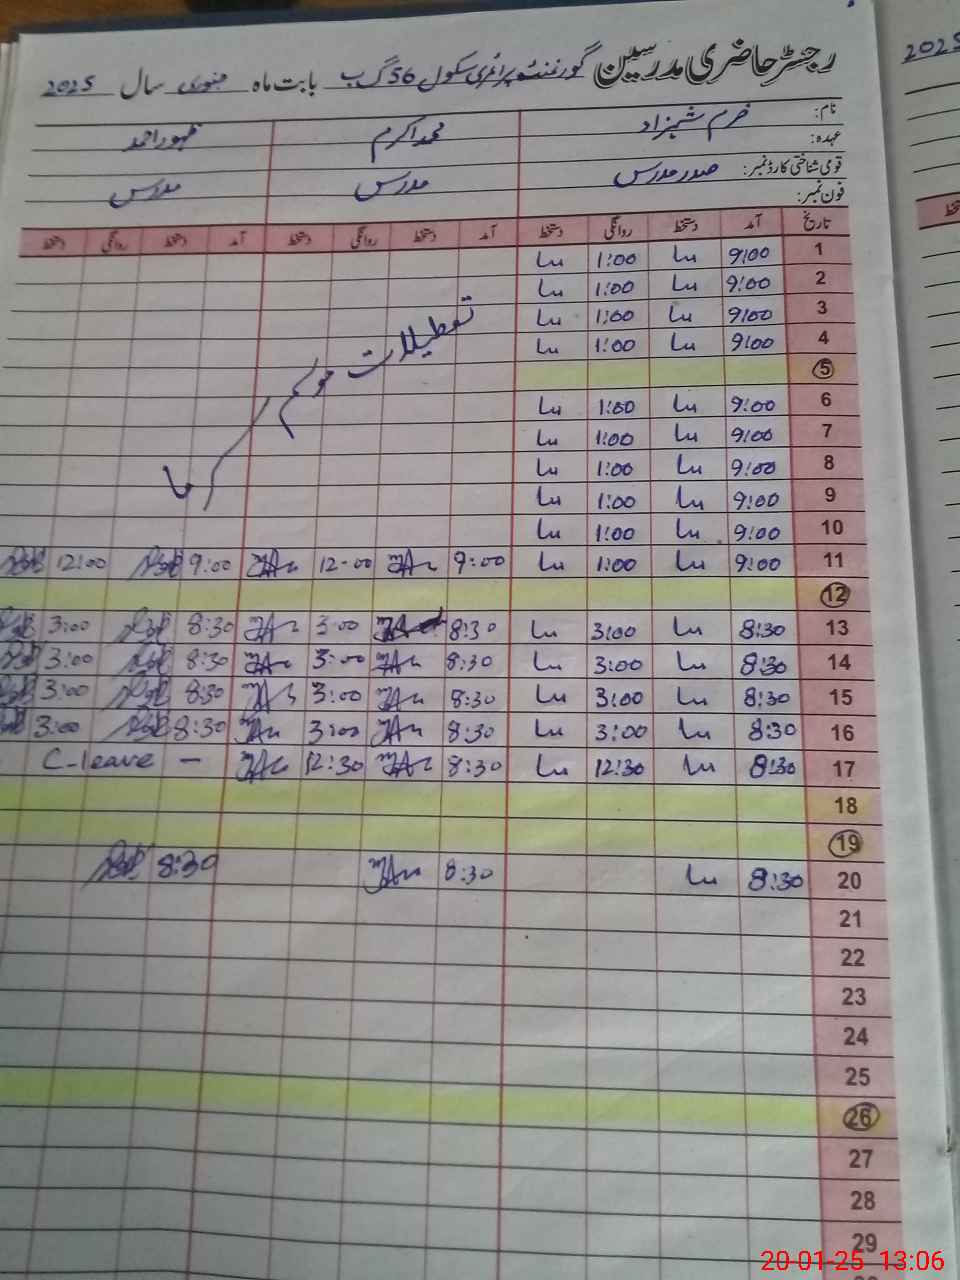 رجسٹر حاضری مدرسین گورنمنٹ پرائمری سکول 56 گ ب بابت ماہ جنوری سال 2025
2025
نام: خرم شہزاد محمد اکرم ظہور احمد
عہدہ:
قومی شناختی کارڈ نمبر: صدر مدرس مدرس مدرس
فون نمبر:
تاریخ آمد دستخط روانگی دستخط آمد دستخط روانگی دستخط آمد دستخط روانگی دستخط
1 9:00 1:00
2 9:00 1:00
3 9:00 1:00
4 9:00 1:00
5
6 9:00 1:00
7 9:00 1:00
8 9:00 1:00
9 9:00 1:00
10 9:00 1:00
تعطیلات موسم سرما
11 9:00 1:00 9:00 12:00 9:00 12:00
12
13 8:30 3:00 8:30 3:00 8:30 3:00
14 8:30 3:00 8:30 3:00 8:30 3:00
15 8:30 3:00 8:30 3:00 8:30 3:00
16 8:30 3:00 8:30 3:00 8:30 3:00
17 8:30 12:30 8:30 12:30 — C-leave
18
19
20 8:30 8:30 8:30
21
22
23
24
25
26
27
28
29
20-01-25 13:06